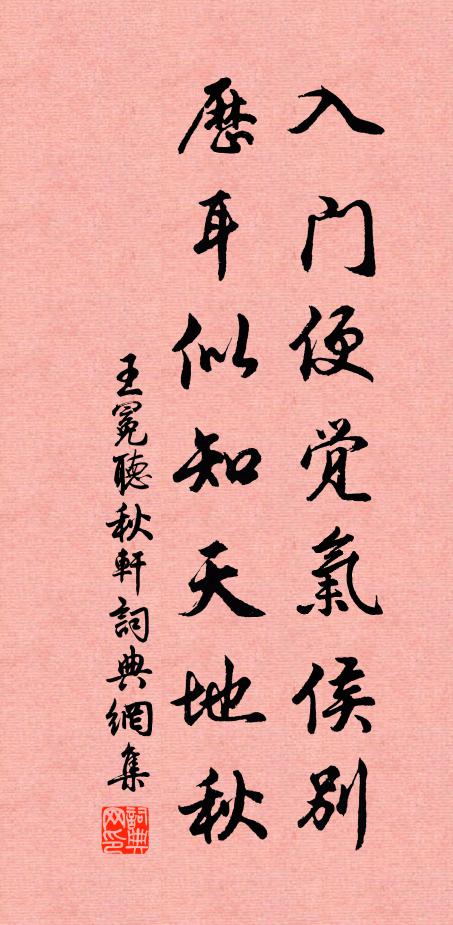 入门便觉氣侯别
歷耳似知天地秋
王冕聽秋軒詞典網集
詞典网印